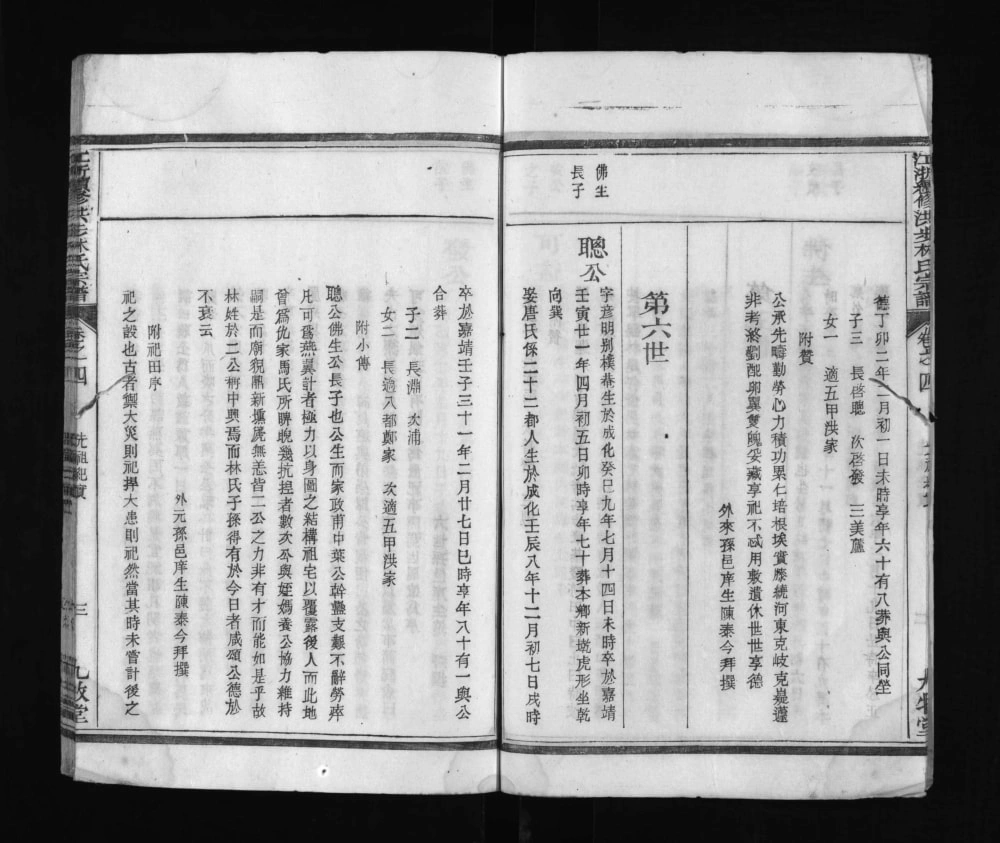 江浙續修洪步林氏宗譜
德丁卯二年二月初一日未時享年六十有八葬與公同塋
子三 長啓聰 次啓發 三美蘆
女一 適五甲洪家
附贊
公承先疇勤勞心力積功累仁培根埃實
非考終劉配卵翼雙魄妥藏享祀不忒用敷遺休世世享德
外來孫邑庠生陳泰今拜撰
第六世
佛生
長子
聰公
字彥明別樸菴生於成化癸巳九年七月十四日未時卒於嘉靖
壬寅廿一年四月初五日卯時享年七十葬本鄉新塘虎形坐乾
向巽
娶唐氏係二十二都人生於成化壬辰八年十二月初七日戌時
卒於嘉靖壬子三十一年二月廿七日巳時享年八十有一與公
合葬
子二 長淵 次浦
女二 長適八都鄭家 次適五甲洪家
附小傳
聰公佛生公長子也公生而家政甫中葉公幹蠱支艱不辭勞瘁
凡可爲燕翼計者極力以身圖之結構祖宅以覆露後人而此地
曾爲仇家馬氏所睥睨幾抗揑者數次公與姪嫣養公協力維持
嗣是而廟貌鼎新㙻屍無恙皆二公之力非有才而能如是乎故
林姓於二公稱中興焉而林氏子孫得有於今日者咸頌公德於
不衰云
外元孫邑庠生陳泰今拜撰
附祀田序
祀之設也古者禦大災則祀捍大患則祀然當其時未嘗計後之
江浙續修洪步林氏宗譜
卷之四
先祖祀實
三
九牧堂